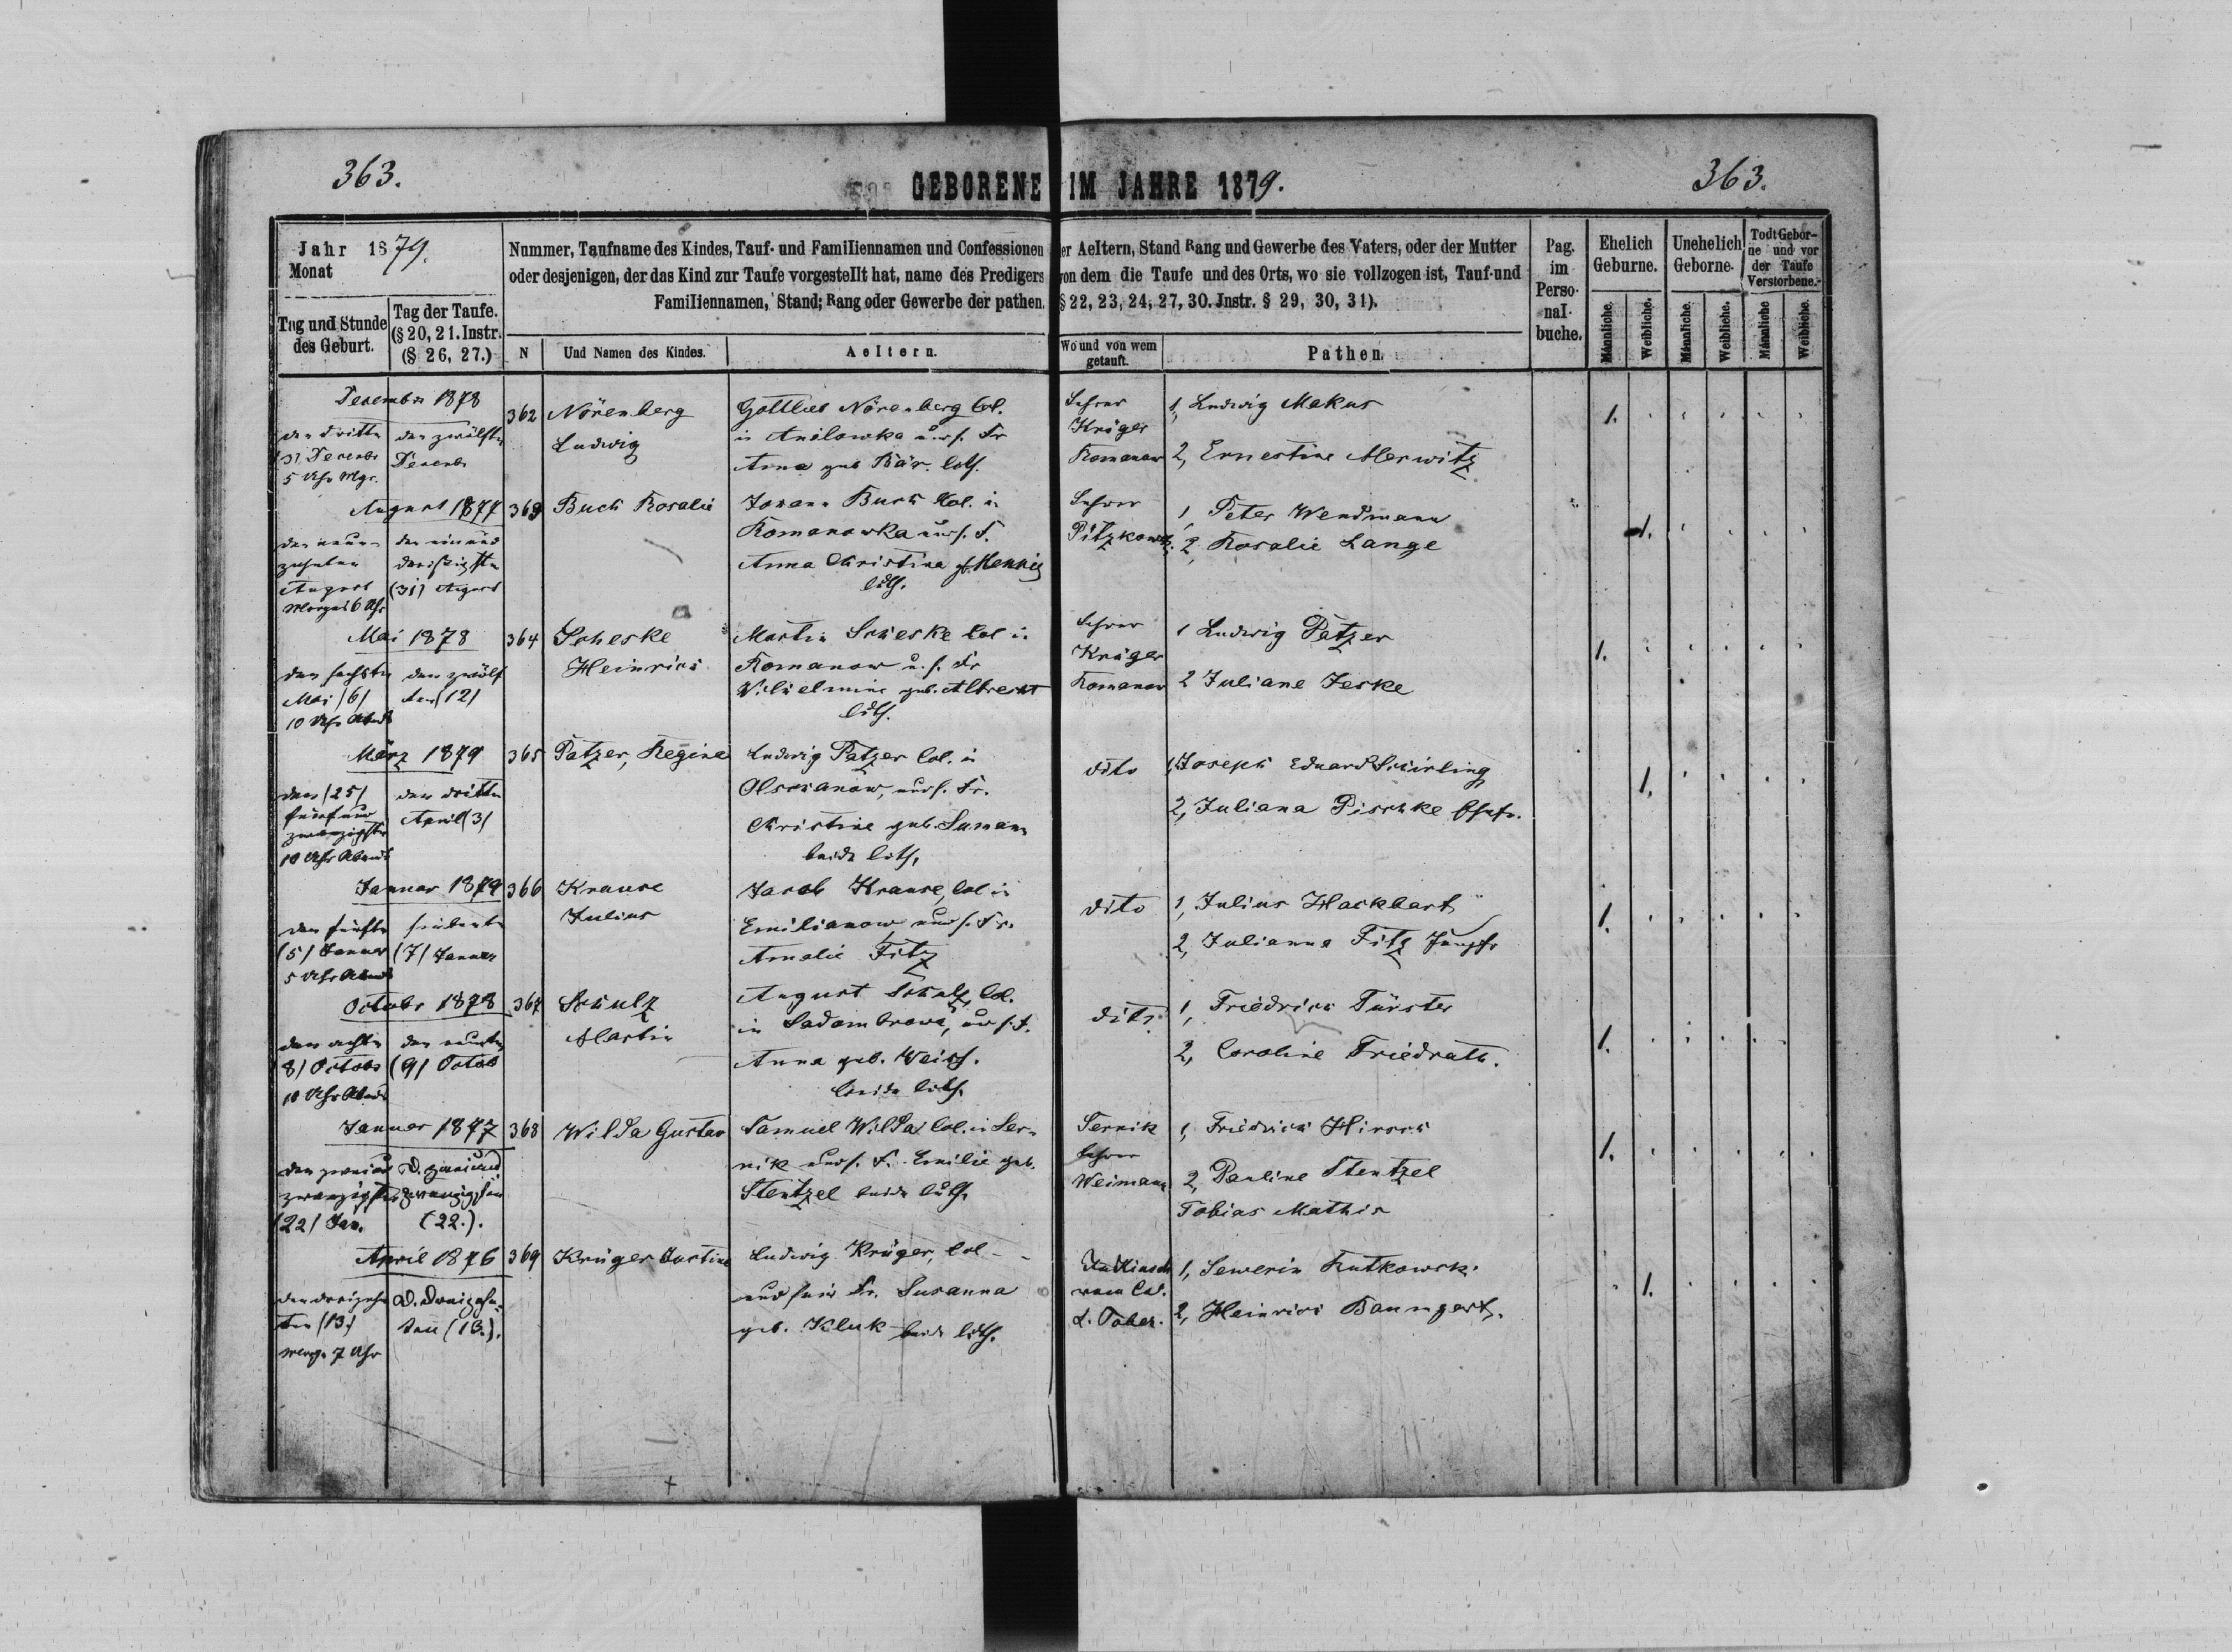 363.
GEBORENE IM JAHRE 1879.
363.
Jahr 1879.
Monat
Tag und Stunde
des Geburt.
Tag der Taufe.
(§ 20, 21. Instr.
(§ 26, 27.)
Nummer, Taufname des Kindes, Tauf- und Familiennamen und Confessionen er Aeltern, Stand Rang und Gewerbe des Vaters, oder der Mutter
oder desjenigen, der das Kind zur Taufe vorgestellt hat, name des Predigers von dem die Taufe und des Orts, wo sie vollzogen ist, Tauf-und
Familiennamen, Stand; Rang oder Gewerbe der pathen. § 22, 23, 24, 27, 30. Jnstr. § 29, 30, 31).
N
Und Namen des Kindes.
Aeltern.
Wo und von wem
getauft.
Pathen.
Pag.
im
Perso-
nal-
buche.
Ehelich
Geburne.
Unehelich
Geborne.
Todt Gebor-
ne und vor
der Taufe
Verstorbene.
Männliche.
Weibliche.
Männliche.
Weibliche.
Männliche
Weibliche.
Dezember 1878
den dritten
(3) Decembr
5 Uhr Mgs.
den zwölften
Decembr
362
Nörenberg
Ludwig
Gottlieb Nörenberg Col.
in Anilowka und s. Fr
Anna geb Bär. luth.
Lehrer
Krüger
Romanow
1, Ludwig Makus
2, Ernestine Merwitz
1.
August 1877
den neun-
zehnten
August
Morgens 6 Uhr
den einund
dreißigsten
(31) August
363
Buch Rosalie
Johann Buch Col. in
Romanowka und s. F.
Anna Christina g. Hennig
luth.
Lehrer
Pitzkowsk.
1, Peter Wendmann
2, Rosalie Lange
1.
Mai 1878
den sechsten
Mai (6)
10 Uhr Abends
den zwölf
ten (12)
364
Scheske
Heinrich
Martin Scheske Col in
Romanow u. s. Fr
Wilhelmine geb. Albrecht
luth.
Lehrer
Krüger
Romanow
1 Ludwig Patzer
2 Juliane Jeske
1.
März 1879
den (25)
fünfund
zwanzigsten
10 Uhr Abends
den dritten
April (3)
365
Patzer, Regine
Ludwig Patzer Col. in
Olschanow, und s. Fr.
Christine geb. Lamann
beide luth.
dito
1, Joseph Eduard Schirling
2, Juliana Pischke
1.
Januar 1879
den fünften
(5) Januar
5 Uhr Abends
siebenten
(7) Januar
366
Krause
Julius
Jacob Krause, Col in
Emilianow und s. Fr.
Amalie Fitz
dito
1, Julius Hackbart
2, Julianna Fitz Jungfr
1.
Octobr 1878
den achten
(8) Octobr
10 Uhr Abends
den neunten
(9) Octob
367
Schulz
Martin
August Schulz, Col.
in Sadombrowa, und s. F.
Anna geb. Weiss.
beide luth.
dito
1, Friedrich Fürster
2, Caroline Friedrath.
1.
Januar 1877
den zweiund
zwanzigsten
(22) Jan.
D. zweiund
zwanzigsten
(22.).
368
Wilda Gustav
Samuel Wilda Col. in Ser-
nik und s. F. Emilie geb.
Stentzel beide luth.
Sernik
Lehrer
Weimann
1, Friedrich Hirsch
2, Pauline Stentzel
Tobias Mathis
1.
April 1876
den dreizehn
ten (13.)
morg. 7 Uhr
D. dreizehn-
ten (13.).
369
Krüger Justine
Ludwig Krüger, Col -
und sein Fr. Susanna
geb. Kluk beide luth.
vom Col.
L. Tober.
1, Sewerin Rutkowski
2, Heinrich Baumgart.
1.